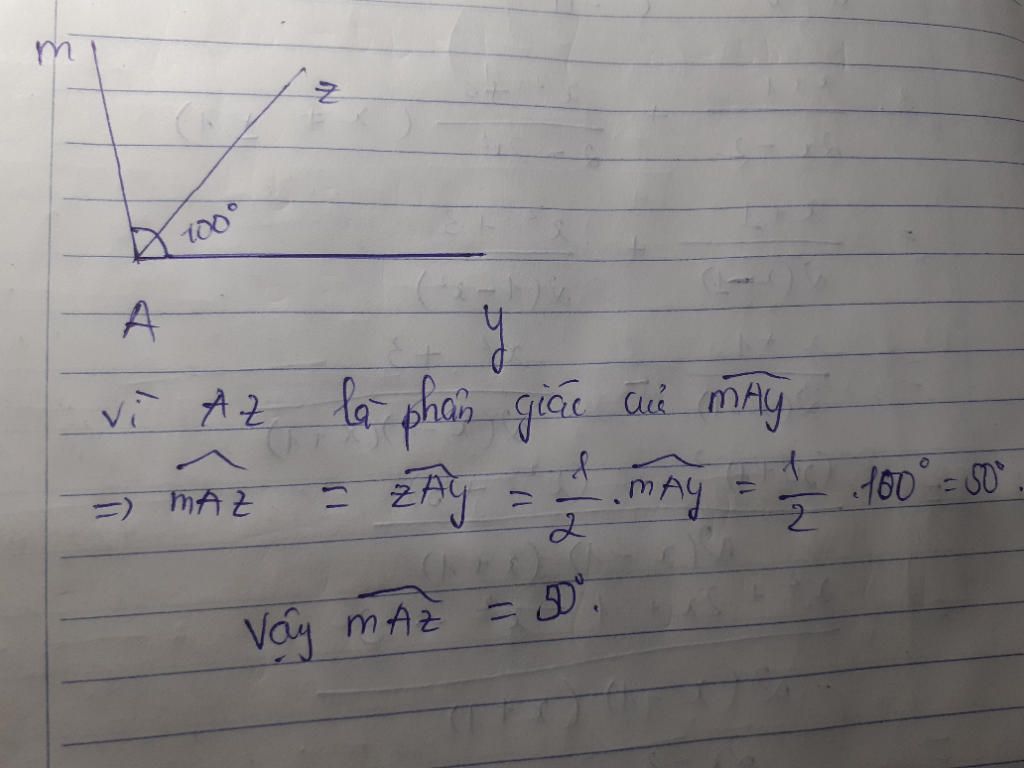 m
z
100°
A
y
Vì Az là phân giác của \widehat{mAy}
=> \widehat{mAz} = \widehat{zAy} = \frac{1}{2} . \widehat{mAy} = \frac{1}{2} . 100° = 50°.
Vậy \widehat{mAz} = 50°.